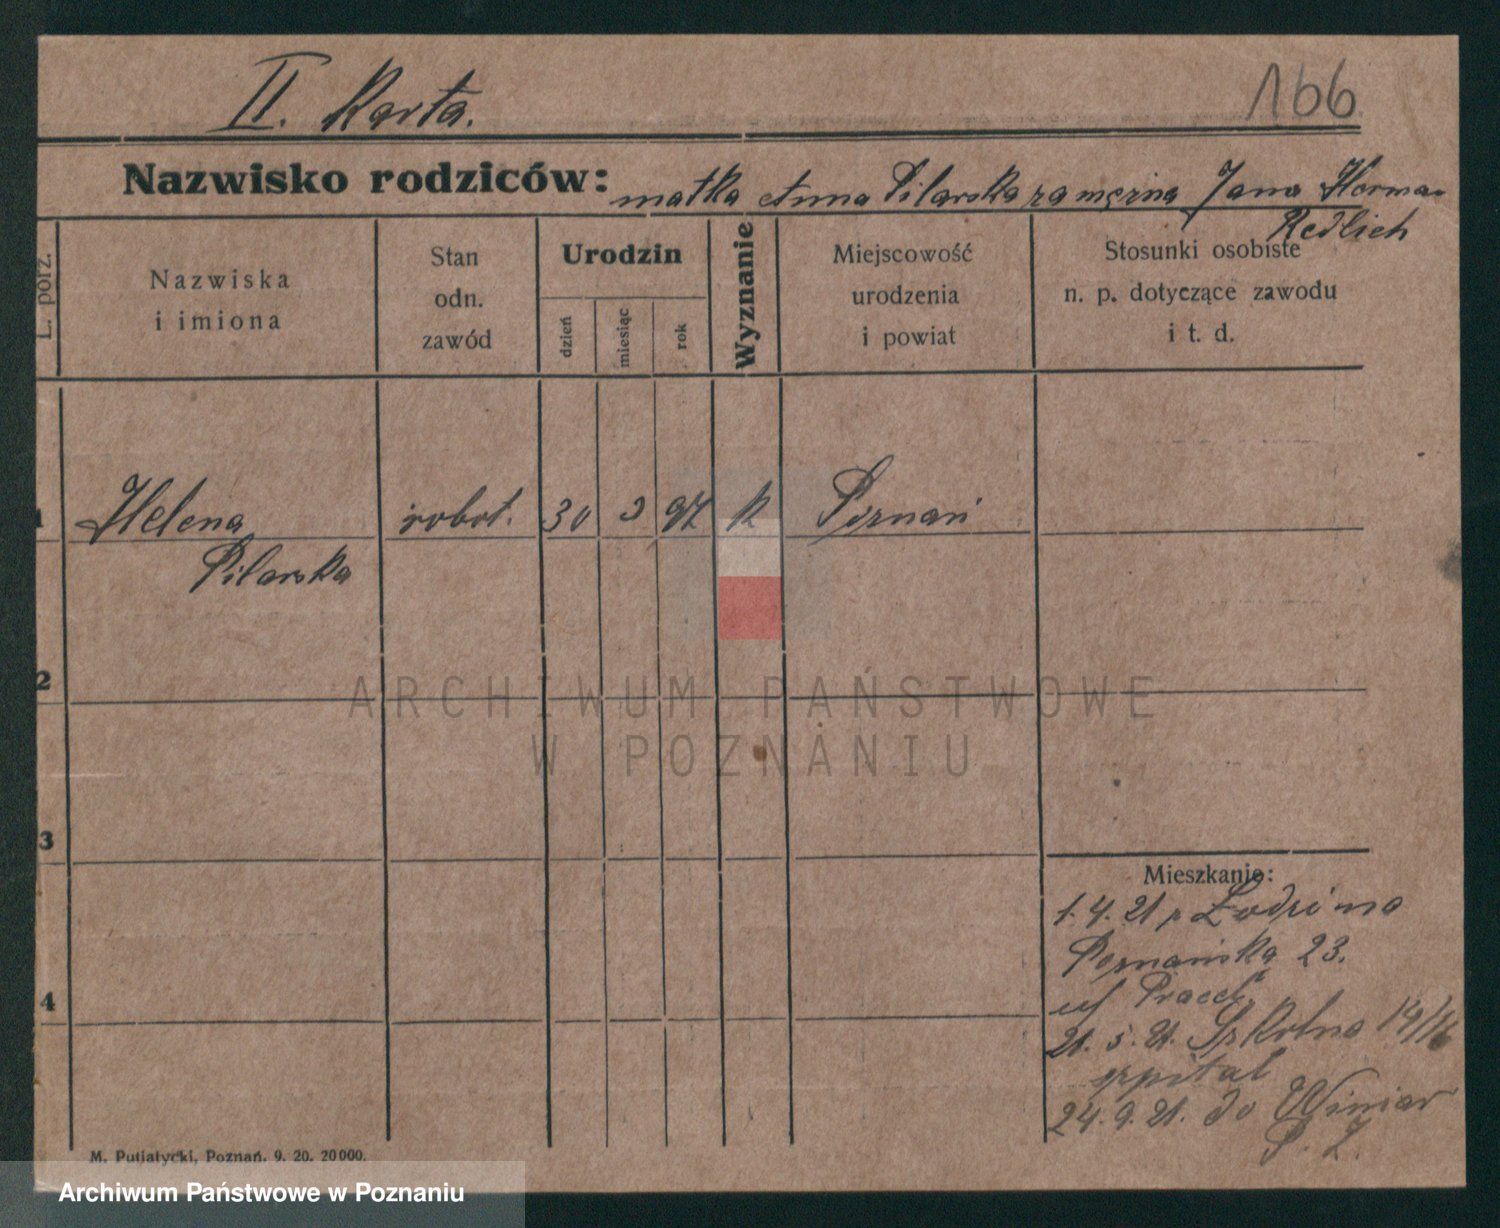 II. Karta.
166
Nazwisko rodziców: matka Anna Pilarska zamężna Jana Herman
Redlich
L. porz.
Nazwiska
i imiona
Stan
odn.
zawód
Urodzin
dzień
miesiąc
rok
Wyznanie
Miejscowość
urodzenia
i powiat
Stosunki osobiste
n. p. dotyczące zawodu
i t. d.
1 Helena robot. 30 3 97 k Poznań
Pilarska
2
ARCHIWUM PAŃSTWOWE
W POZNANIU
3
Mieszkanie:
1.4.21 z Łodzi na
Poznańska 23.
4
21.5.21. Szkolna 14/16
szpital
24.9.21. do Winiar
P. Z.
M. Putiatycki, Poznań. 9. 20. 20000.
Archiwum Państwowe w Poznaniu